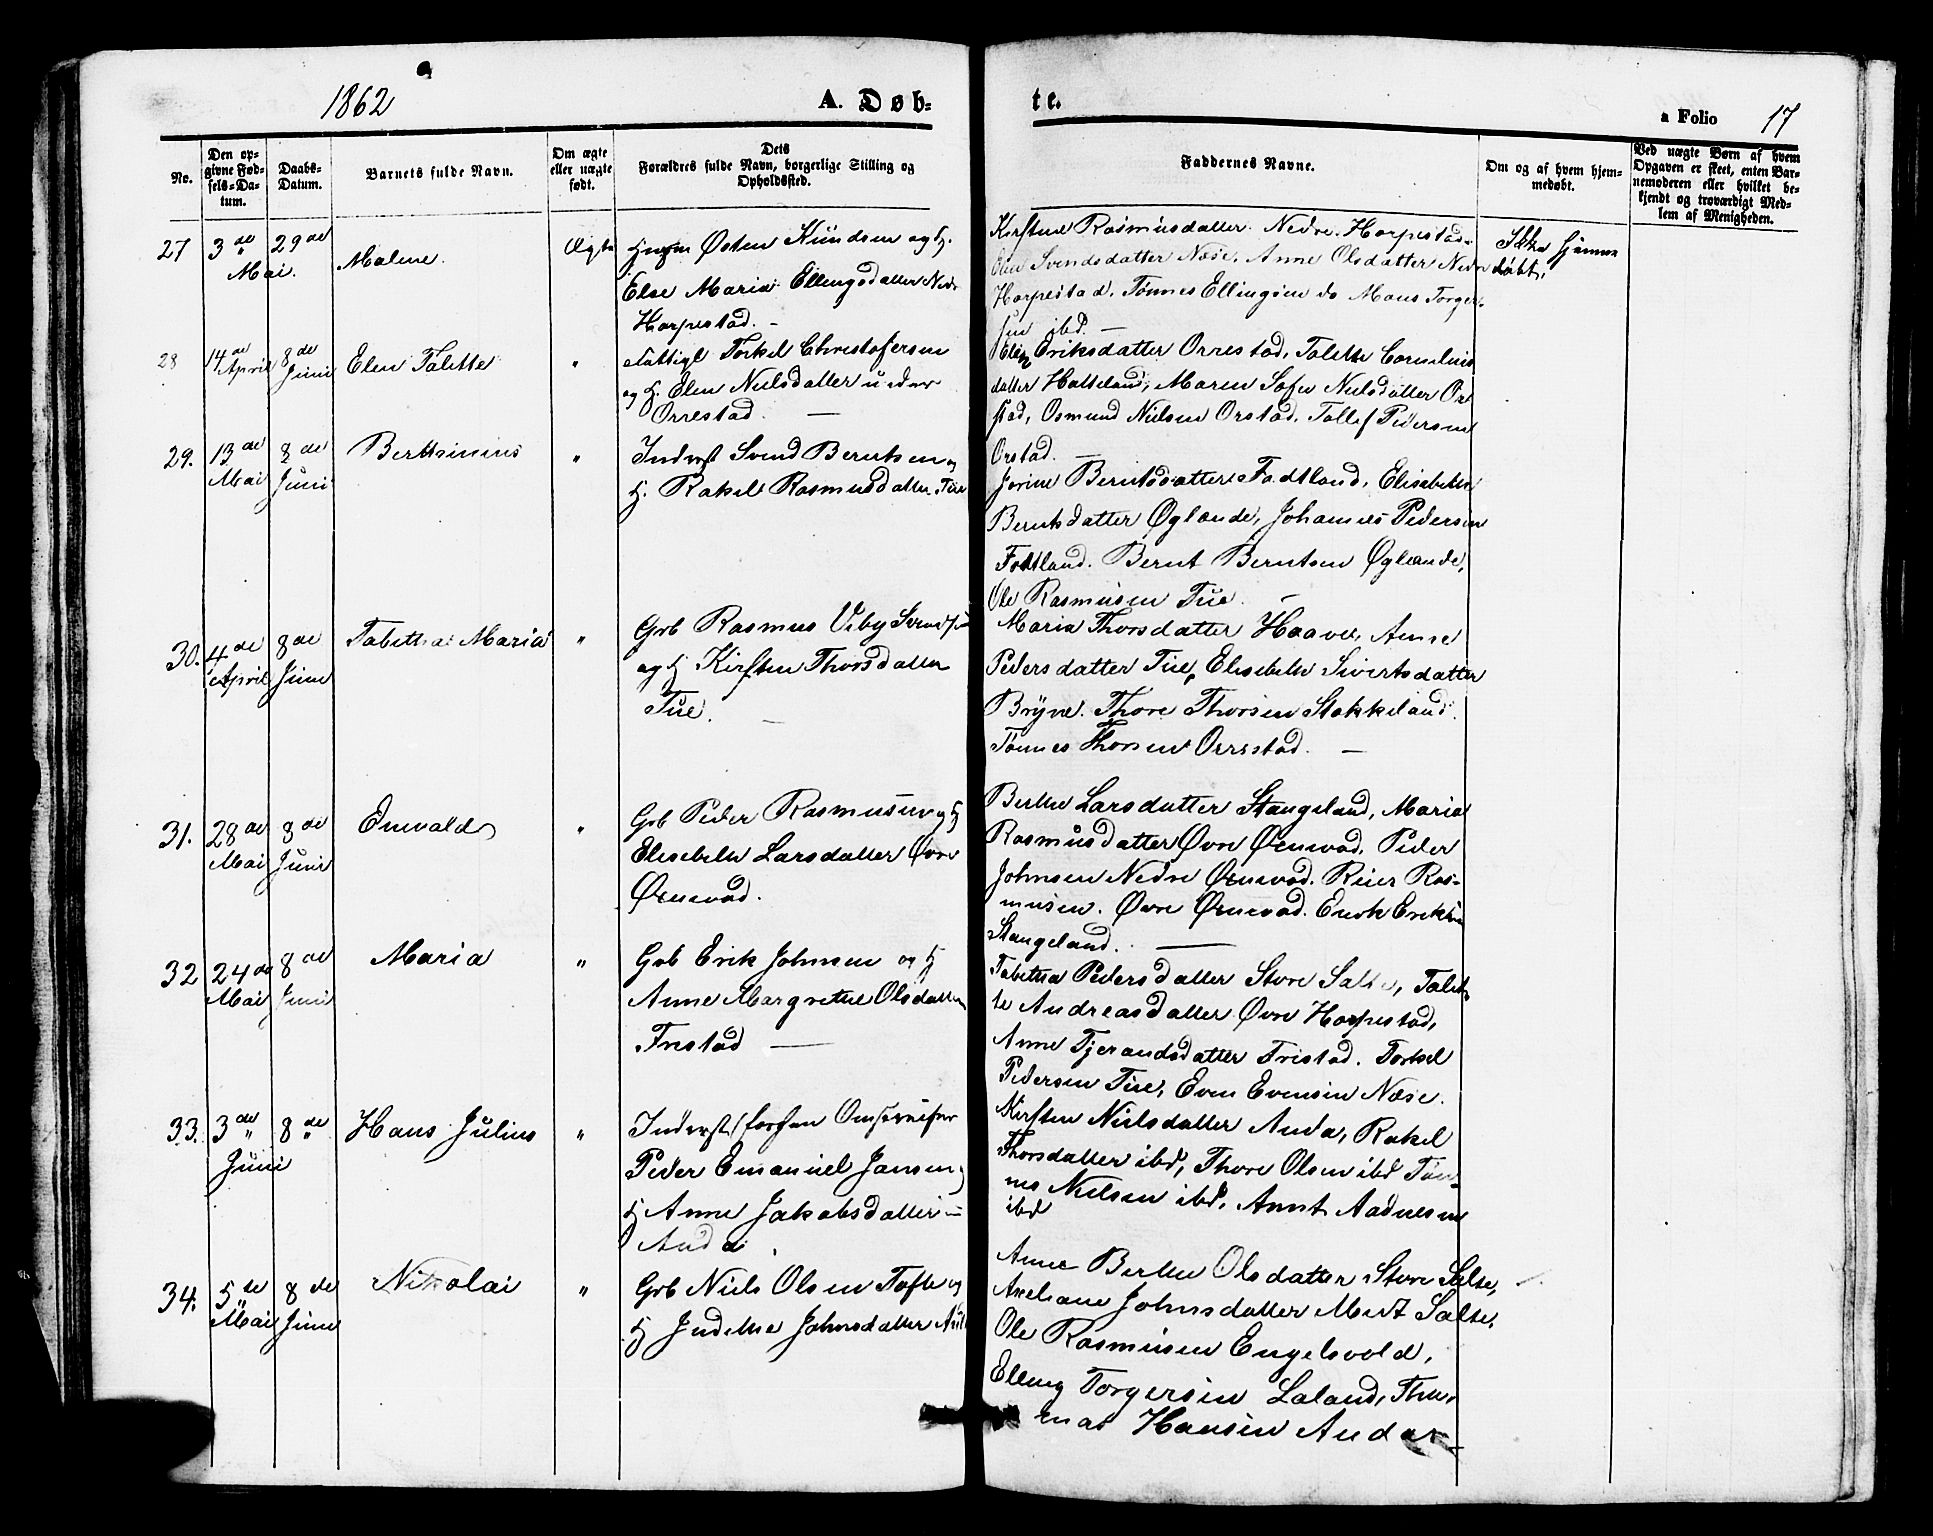 1862
A. Døb-
te.
a Folio 17
No.
Den op-
givne Fød-
sels-Da-
tum.
Daabs-
Datum.
Barnets fulde Navn.
Om ægte
eller uægte
født.
Dets
Forældres fulde Navn, borgerlige Stilling og
Opholdssted.
Faddernes Navne.
Om og af hvem hjem-
medøbt.
Ved uægte Børn af hvem
Opgaven er skeet, enten Bar-
nemoderen eller hvilket be-
kjendt og troværdigt Med-
lem af Menigheden.
27
3de
Mai.
29de
Malene.
Ægte
Østen Knudsen og H.
Else Maria Ellingsdatter Nedr
Harpestad. —
Kirstine Rasmusdatter Nedre Harpestad.
Svendsdatter Næse, Anne Olsdatter Nedr
Harpestad, Tønnes Ellingsen do Mons Torger-
sen ibd. —
Ikke hjemme
døbt.
28
14de
April
8de
Juni
Elen Talette
"
Torkel Christofersen
og H. Elen Nielsdatter
Orrestad —
Eriksdatter Orrestad, Talette Cornelius
datter Hatteland, Maren Sofie Nielsdatter Or
stad, Osmund Nielsen Orstad, Tollef Pedersen
Orstad. —
29.
13de
Mai
8de
Juni
Berthinius
"
Inderst Svend Berntsen og
H. Rakel Rasmusdatter Tue
Jorine Berntsdatter Fodtland, Elisabeth
Berntsdatter Øglænde, Johannes Pedersen
Fodtland. Bernt Berntsen Øglænde,
Ole Rasmussen Tue. —
30.
4de
April
8de
Juni
Tabitha Maria
"
Grb Rasmus Viby Svendsen
og H Kirsten Thorsdatter
Tue. —
Maria Thorsdatter Haave, Anne
Pedersdatter Tue, Elisabeth Sivertsdatter
Bryne. Thore Thorsen Stokkeland.
Tønnes Thorsen Orrestad. —
31.
28de
Mai
8de
Juni
Enevald
"
Grb Peder Rasmussen og H
Elisabeth Larsdatter Øvre
Ørnevad.
Berthe Larsdatter Stangeland, Maria
Rasmusdatter Øvre Ørnevad, Peder
Johnsen Nedre Ørnevad. Reier Ras-
musen. Øvre Ørnevad. Enok Eriksen
Stangeland. —
32
24de
Mai
8de
Juni
Maria
"
Grb Erik Johnsen og H
Anne Margrethe Olsdatter
Fristad —
Tabitha Pedersdatter Store Salte, Talet-
te Andreasdatter Øvre Harpestad,
Anne Tjerandsdatter Fristad. Torkel
Pedersen Tue, Even Evensen Næse.
33.
3de
Juni
8de
Hans Julius
"
Inderst forhen Omstreifer
Peder Emanuel Jansen
H Anne Jakobsdatter
Anda
Kirsten Nielsdatter Anda, Rakel
Thorsdatter ibd, Thore Olsen ibd Tøn-
nes Nielsen ibd, Arnt Aadnesen
ibd
34.
5te
Mai
8de
Juni
Nikolai
"
Grb Niels Olsen Tofte og
H Judithe Johnsdatter
Anne Berthe Olsdatter Store Salte,
Axeliane Johnsdatter Salte.
Ole Rasmussen Engelsvold,
Elling Torgersen Laland, Tho-
mas Hansen Anda